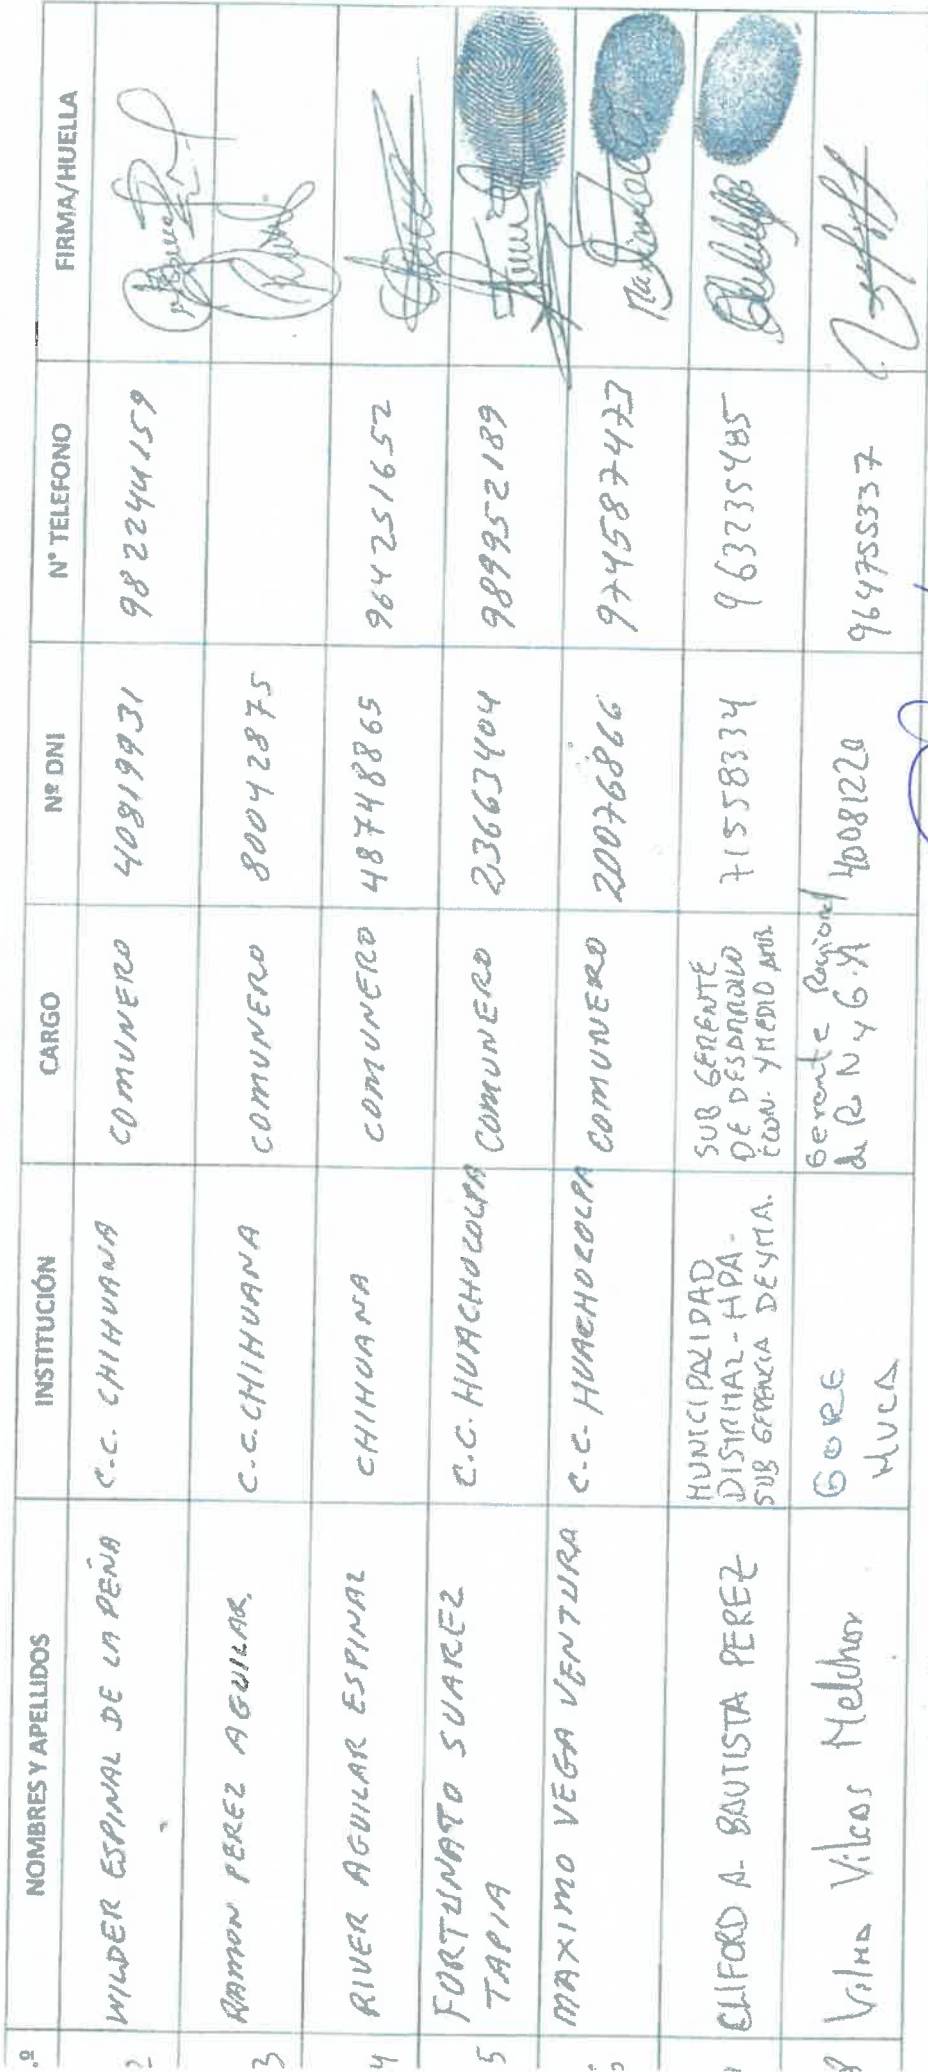 .º NOMBRES Y APELLIDOS INSTITUCIÓN CARGO Nº DNI N° TELEFONO FIRMA/HUELLA
2 WILDER ESPINAL DE LA PEÑA C.C. CHIHUANA COMUNERO 40819931 982244159
3 RAMON PEREZ AGUILAR. C.C. CHIHUANA COMUNERO 80042875
4 RIVER AGUILAR ESPINAL CHIHUANA COMUNERO 48748865 964251652
5 FORTUNATO SUAREZ C.C. HUACHOCOLPA COMUNERO 23663404 989952189
TAPIA
MAXIMO VEGA VENTURA C.C. HUACHOCOLPA COMUNERO 20076866 974587473
CLIFORD A. BAUTISTA PEREZ MUNICIPALIDAD SUB GERENTE 71558334 963235485
DISTRITAL - HPA - DE DESARROLLO
SUB GERENCIA DEYMA. ECON. Y MEDIO AMB.
Vilma Vilcas Melchor GORE Gerente Regional 40081220 964755337
HVCA de R N y G.A